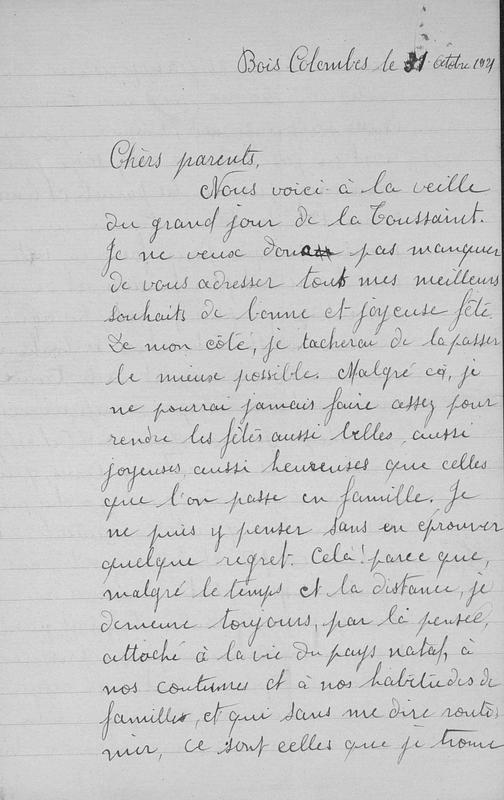 Bois Colombes le 31 Octobre 1921
Chèrs parents,
Nous voici à la veille
du grand jour de la Toussaint.
Je ne veux donc pas manquer
de vous adresser tous mes meilleurs
souhaits de bonne et joyeuse fête.
De mon côté, je tacherai de la passer
le mieux possible. Malgré ça, je
ne pourrai jamais faire assez pour
rendre les fêtes aussi belles, aussi
joyeuses, aussi heureuses que celles
que l'on passe en famille. Je
ne puis y penser sans en éprouver
quelque regret. Celà! parce que,
malgré le temps et la distance, je
demeure toujours, par la pensée,
attaché à la vie du pays natal, à
nos coutumes et à nos habitudes de
familles, et qui sans me dire routi-
nier, ce sont celles que je trouve